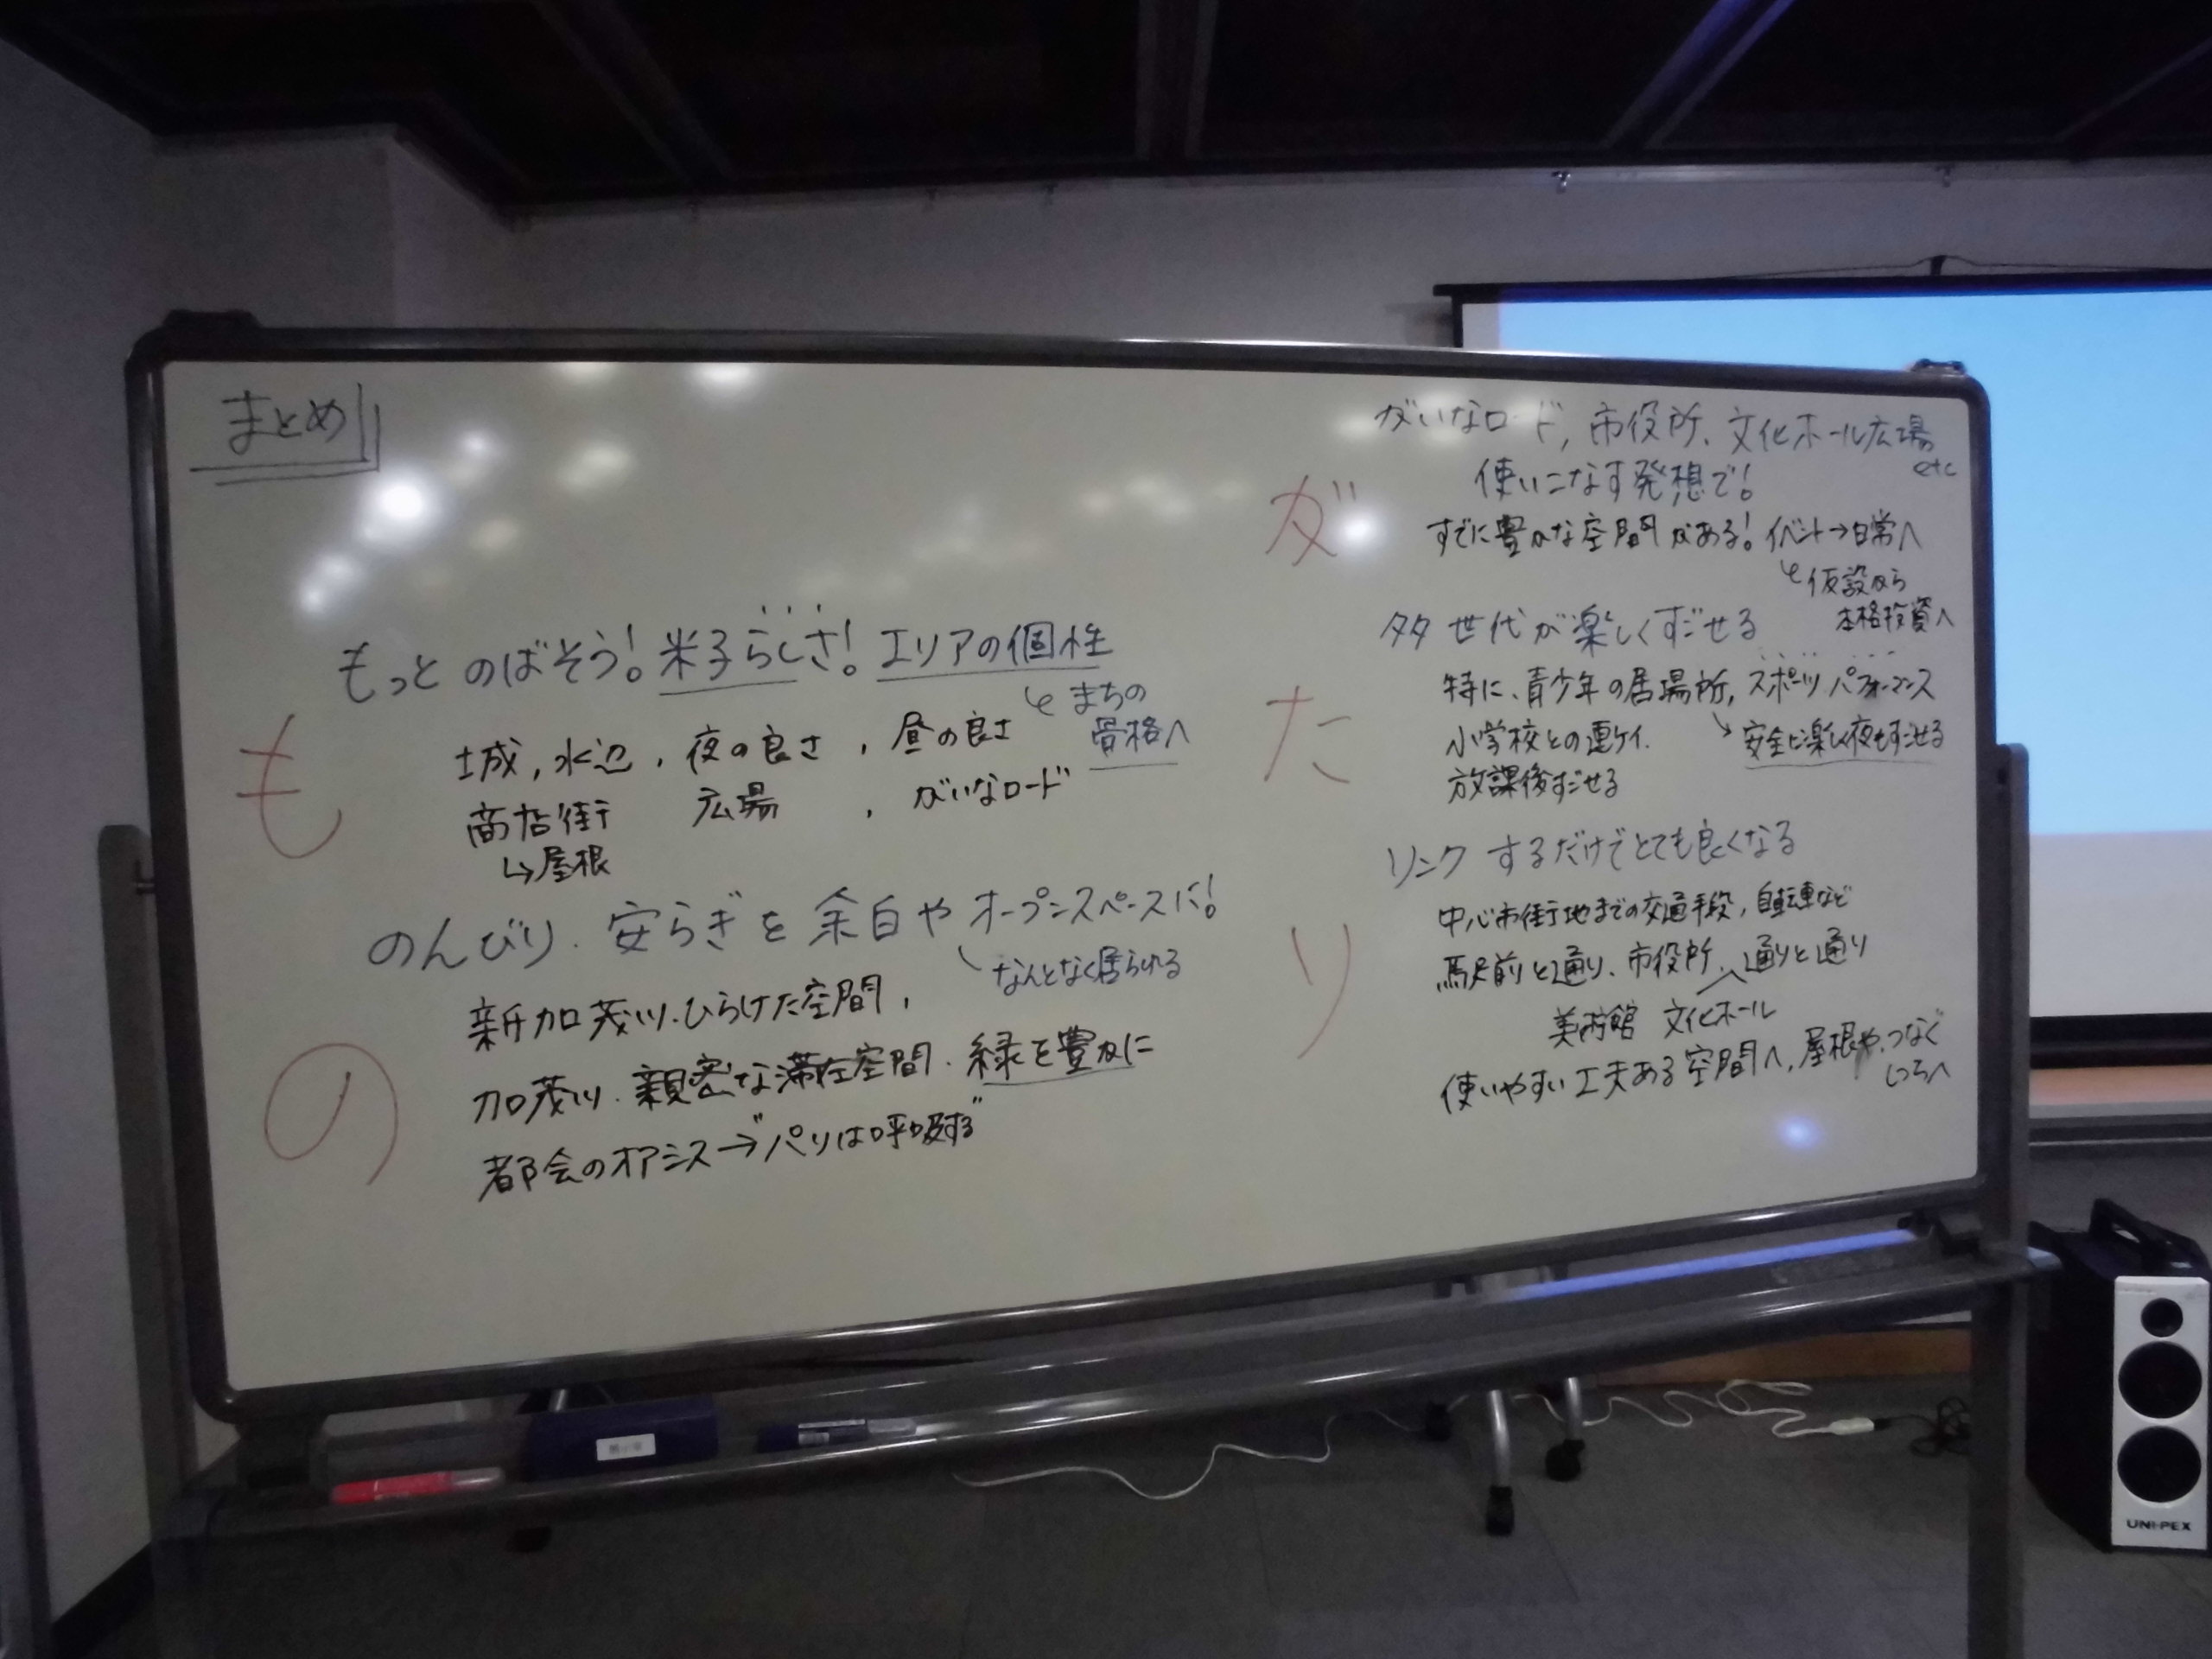 まとめ
も
もっと のばそう! 米子らしさ! エリアの個性
まちの
骨格へ
城, 水辺, 夜の良さ, 昼の良さ
商店街 広場, がいなロード
↳屋根
の
のんびり、安らぎを余白やオープンスペースに!
なんとなく居られる
新加茂川、ひらけた空間,
加茂川、親密な滞在空間、緑を豊かに
都会のオアシス→"パリは呼吸する"
が
がいなロード, 市役所、文化ホール広場
etc
使いこなす発想で!
すでに豊かな空間がある! イベント→日常へ
仮設から
本格投資へ
た
多世代が楽しくすごせる
特に、青少年の居場所, スポーツ パフォーマンス
小学校との連ケイ.
安全に楽しく夜もすごせる
放課後すごせる
り
リンク するだけでとても良くなる
中心市街地までの交通手段, 自転車など
駅前と通り、市役所、通りと通り
美術館 文化ホール
使いやすい工夫ある空間へ, 屋根や、つなぐ
しつらへ
UNI-PEX